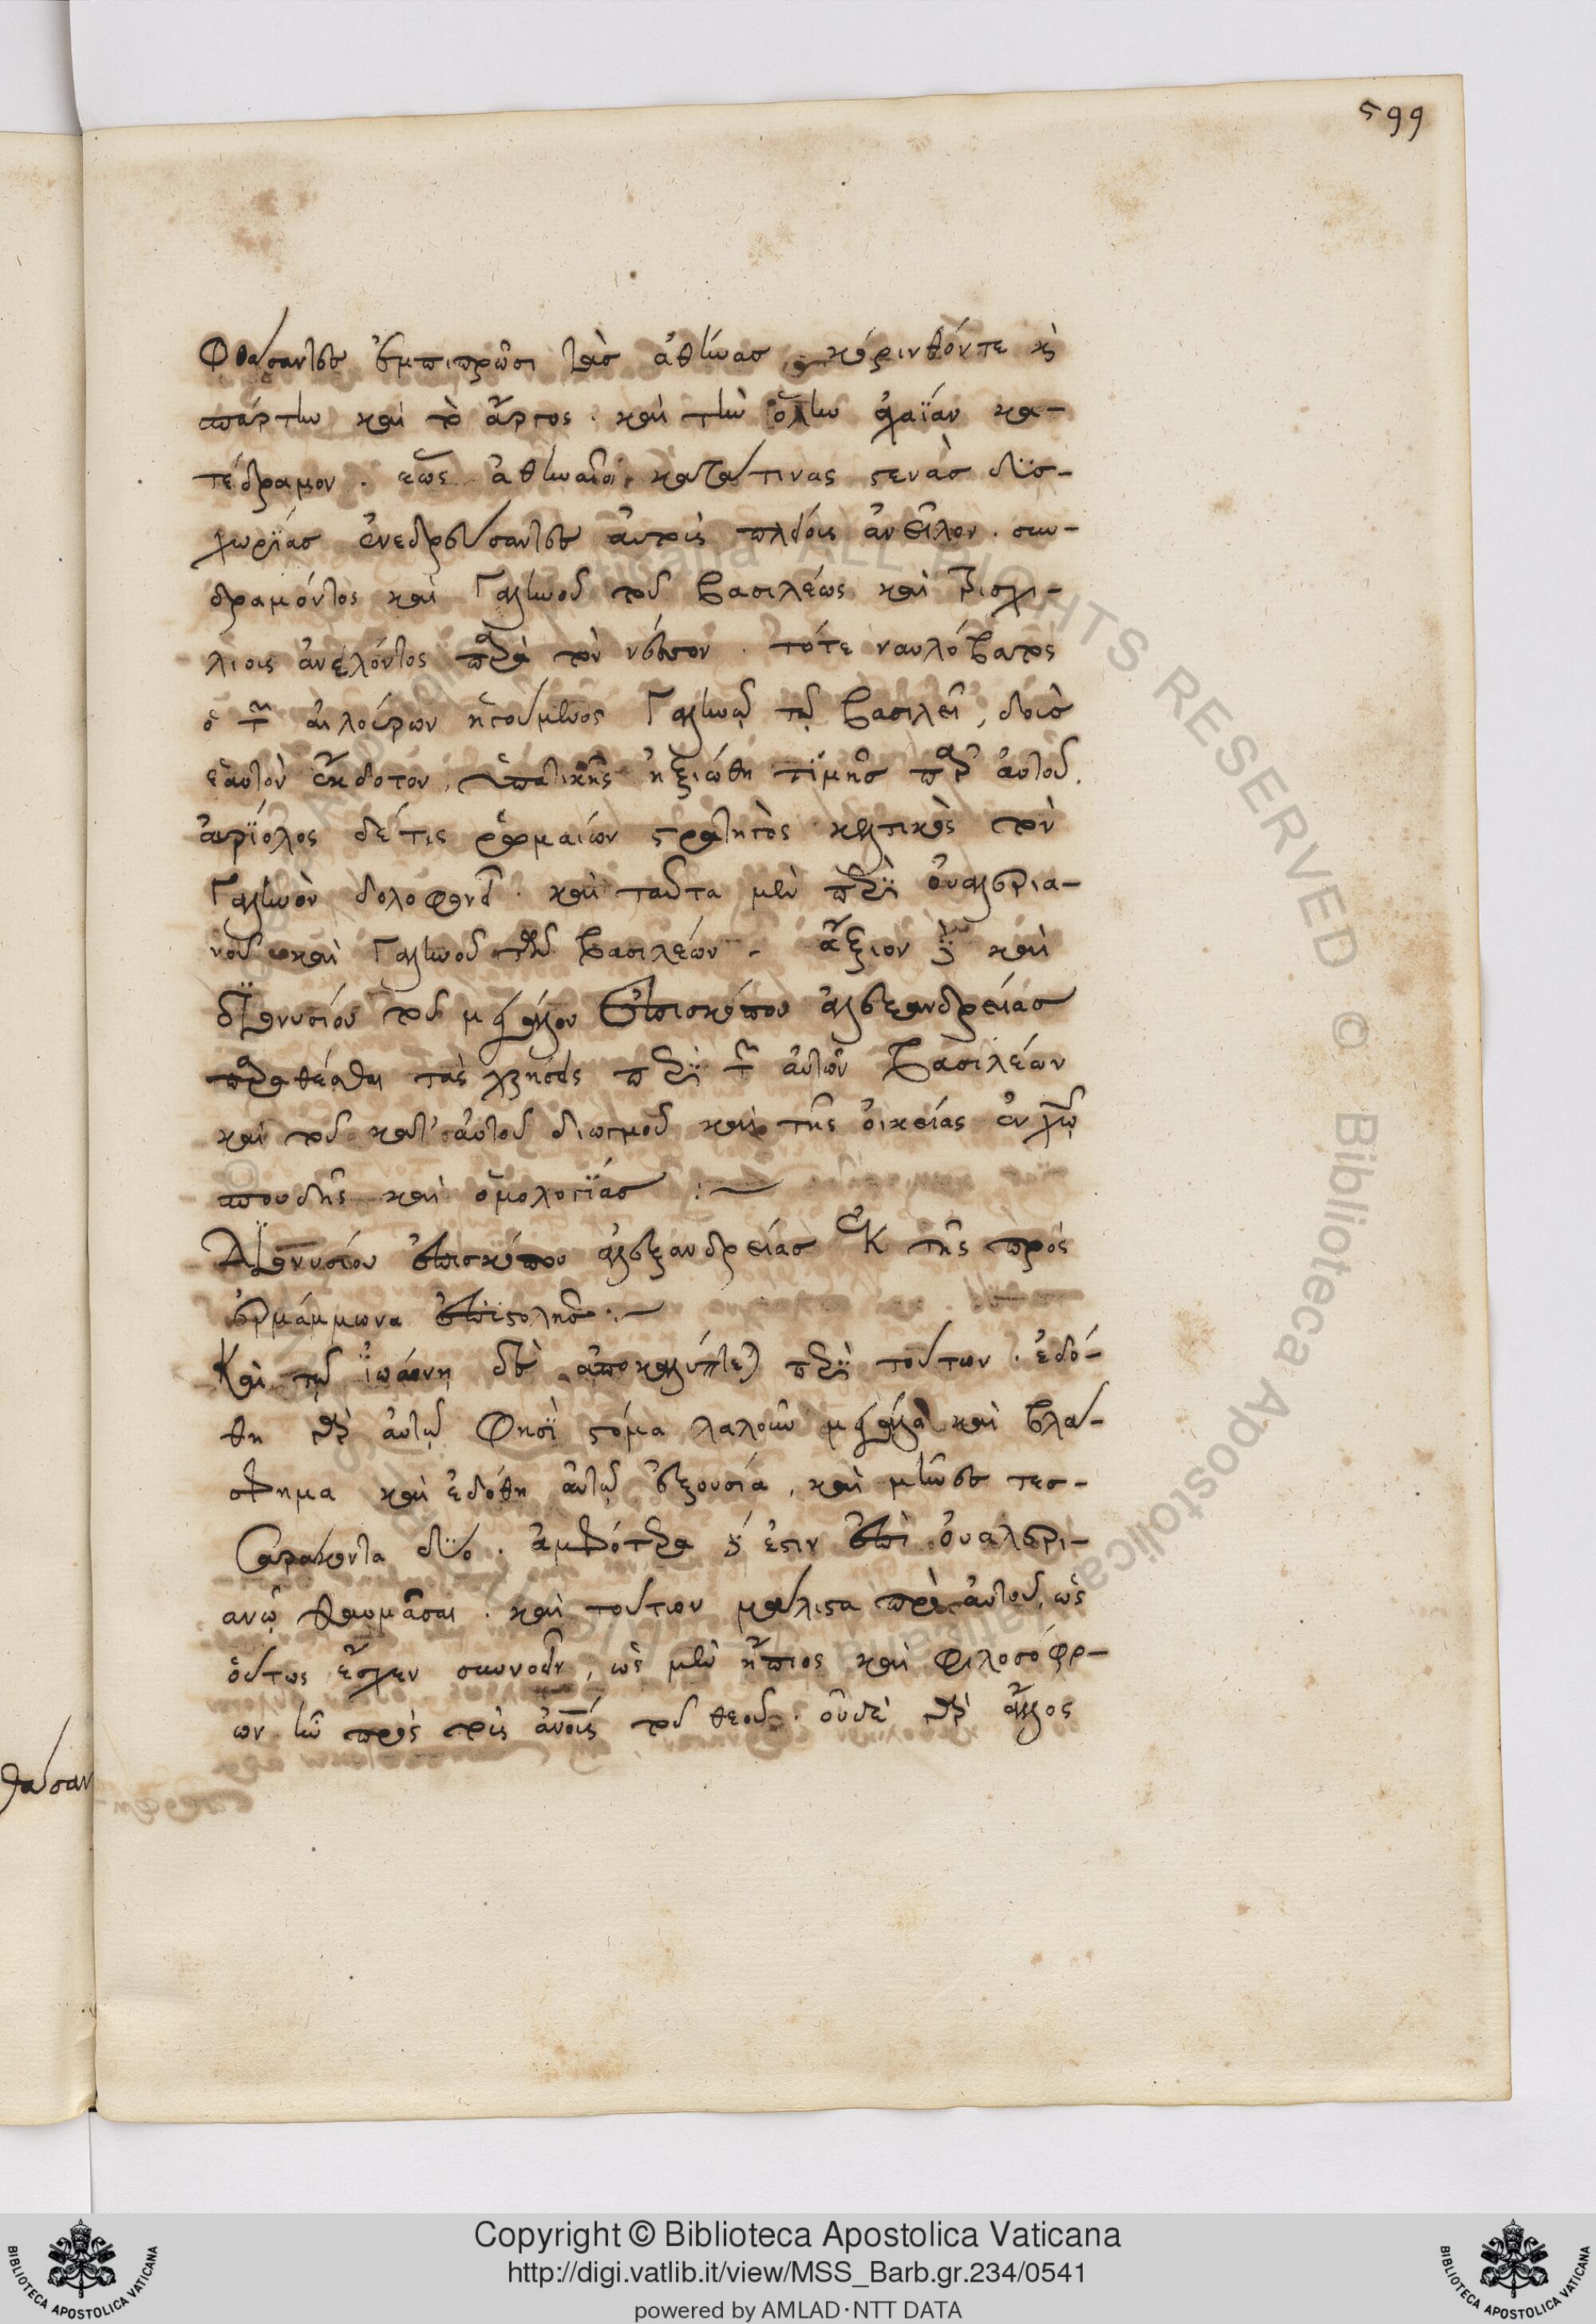 599
φθάσαντες ἐμπιπρῶσι τὰς ἀθήνας, κόρινθόν τε κ̀
σπάρτην καὶ τὸ ἄργος. καὶ τὴν ὅλην ἀχαΐαν κα-
τέδραμον. ἕως ἀθηναῖοι κατά τινας στενὰς δυσ-
χωρίας ἐνεδρεύσαντες αὐτοὺς πλείους ἀνεῖλον. συν-
δραμόντος καὶ Γαλιηνοῦ τοῦ βασιλέως καὶ τρισχι-
λίοις ἀνελόντος παρὰ τὸν νέσσον. τότε ναυλόβατος
ὁ τῶν αἰλούρων ἡγούμενος Γαλιηνῷ τῷ βασιλεῖ, δοὺς
ἑαυτὸν ἔκδοτον, ὑπατικῆς ἠξιώθη τιμῆς παρ' αὐτοῦ.
αὐρίολος δέ τις ῥωμαίων στρατηγὸς κελτικὸς τὸν
Γαλιηνὸν δολοφονεῖ. καὶ ταῦτα μὲν περὶ οὐαλερια-
νοῦ καὶ Γαλιηνοῦ τῶν βασιλέων. ἄξιον δὲ καὶ
διονυσίου τοῦ μεγάλου ἐπισκόπου ἀλεξανδρείας
παραθέσθαι τὰς χρήσεις περὶ τῶν αὐτῶν βασιλέων
καὶ τοῦ κατ' αὐτοῦ διωγμοῦ καὶ τῆς οἰκείας ἐν χῶ
σπουδῆς καὶ ὁμολογίας :~
Διονυσίου ἐπισκόπου ἀλεξανδρείας ἐκ τῆς πρὸς
ἑρμάμμωνα ἐπιστολῆς :~
Καὶ τῷ ἰωάννῃ δὲ ἀποκαλύπτεται περὶ τούτων. ἐδό-
θη γὰρ αὐτῷ φησὶ στόμα λαλοῦν μεγάλα καὶ βλά-
σφημα καὶ ἐδόθη αὐτῷ ἐξουσία, καὶ μῆνες τεσ-
σαράκοντα δύο. ἀμφότερα δέ ἐστιν ἐπὶ οὐαλερι-
ανῷ θαυμᾶσαι. καὶ τούτων μάλιστα πρὸ αὐτοῦ, ὡς
οὕτως ἔσχεν συνοδεῖν, ὡς μὲν ἤπιος καὶ φιλοσόφρ-
ων ἦν πρὸς τοὺς ἀνους τοῦ θεοῦ. οὐδὲ γὰρ ἄλλος
θάσαν
Copyright © Biblioteca Apostolica Vaticana
http://digi.vatlib.it/view/MSS_Barb.gr.234/0541
powered by AMLAD·NTT DATA